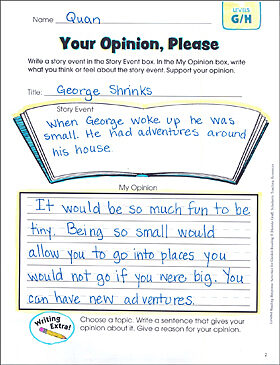 Name Quan
LEVELS
G/H
Your Opinion, Please
Write a story event in the Story Event box. In the My Opinion box, write
what you think or feel about the story event. Support your opinion.
Title: George Shrinks
Story Event
When George woke up he was
small. He had adventures around
his house.
My Opinion
It would be so much fun to be
tiny. Being so small would
allow you to go into places you
would not go if you were big. You
can have new adventures.
Writing
Extra!
Choose a topic. Write a sentence that gives your
opinion about it. Give a reason for your opinion.
2